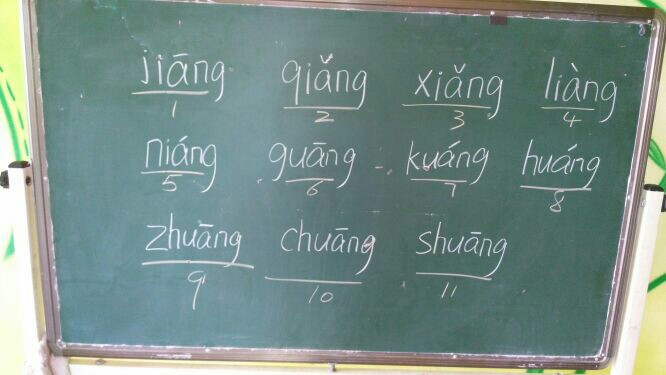 jiāng qiǎng xiǎng liàng
1 2 3 4
niáng guāng kuáng huáng
5 6 7 8
zhuāng chuāng shuāng
9 10 11